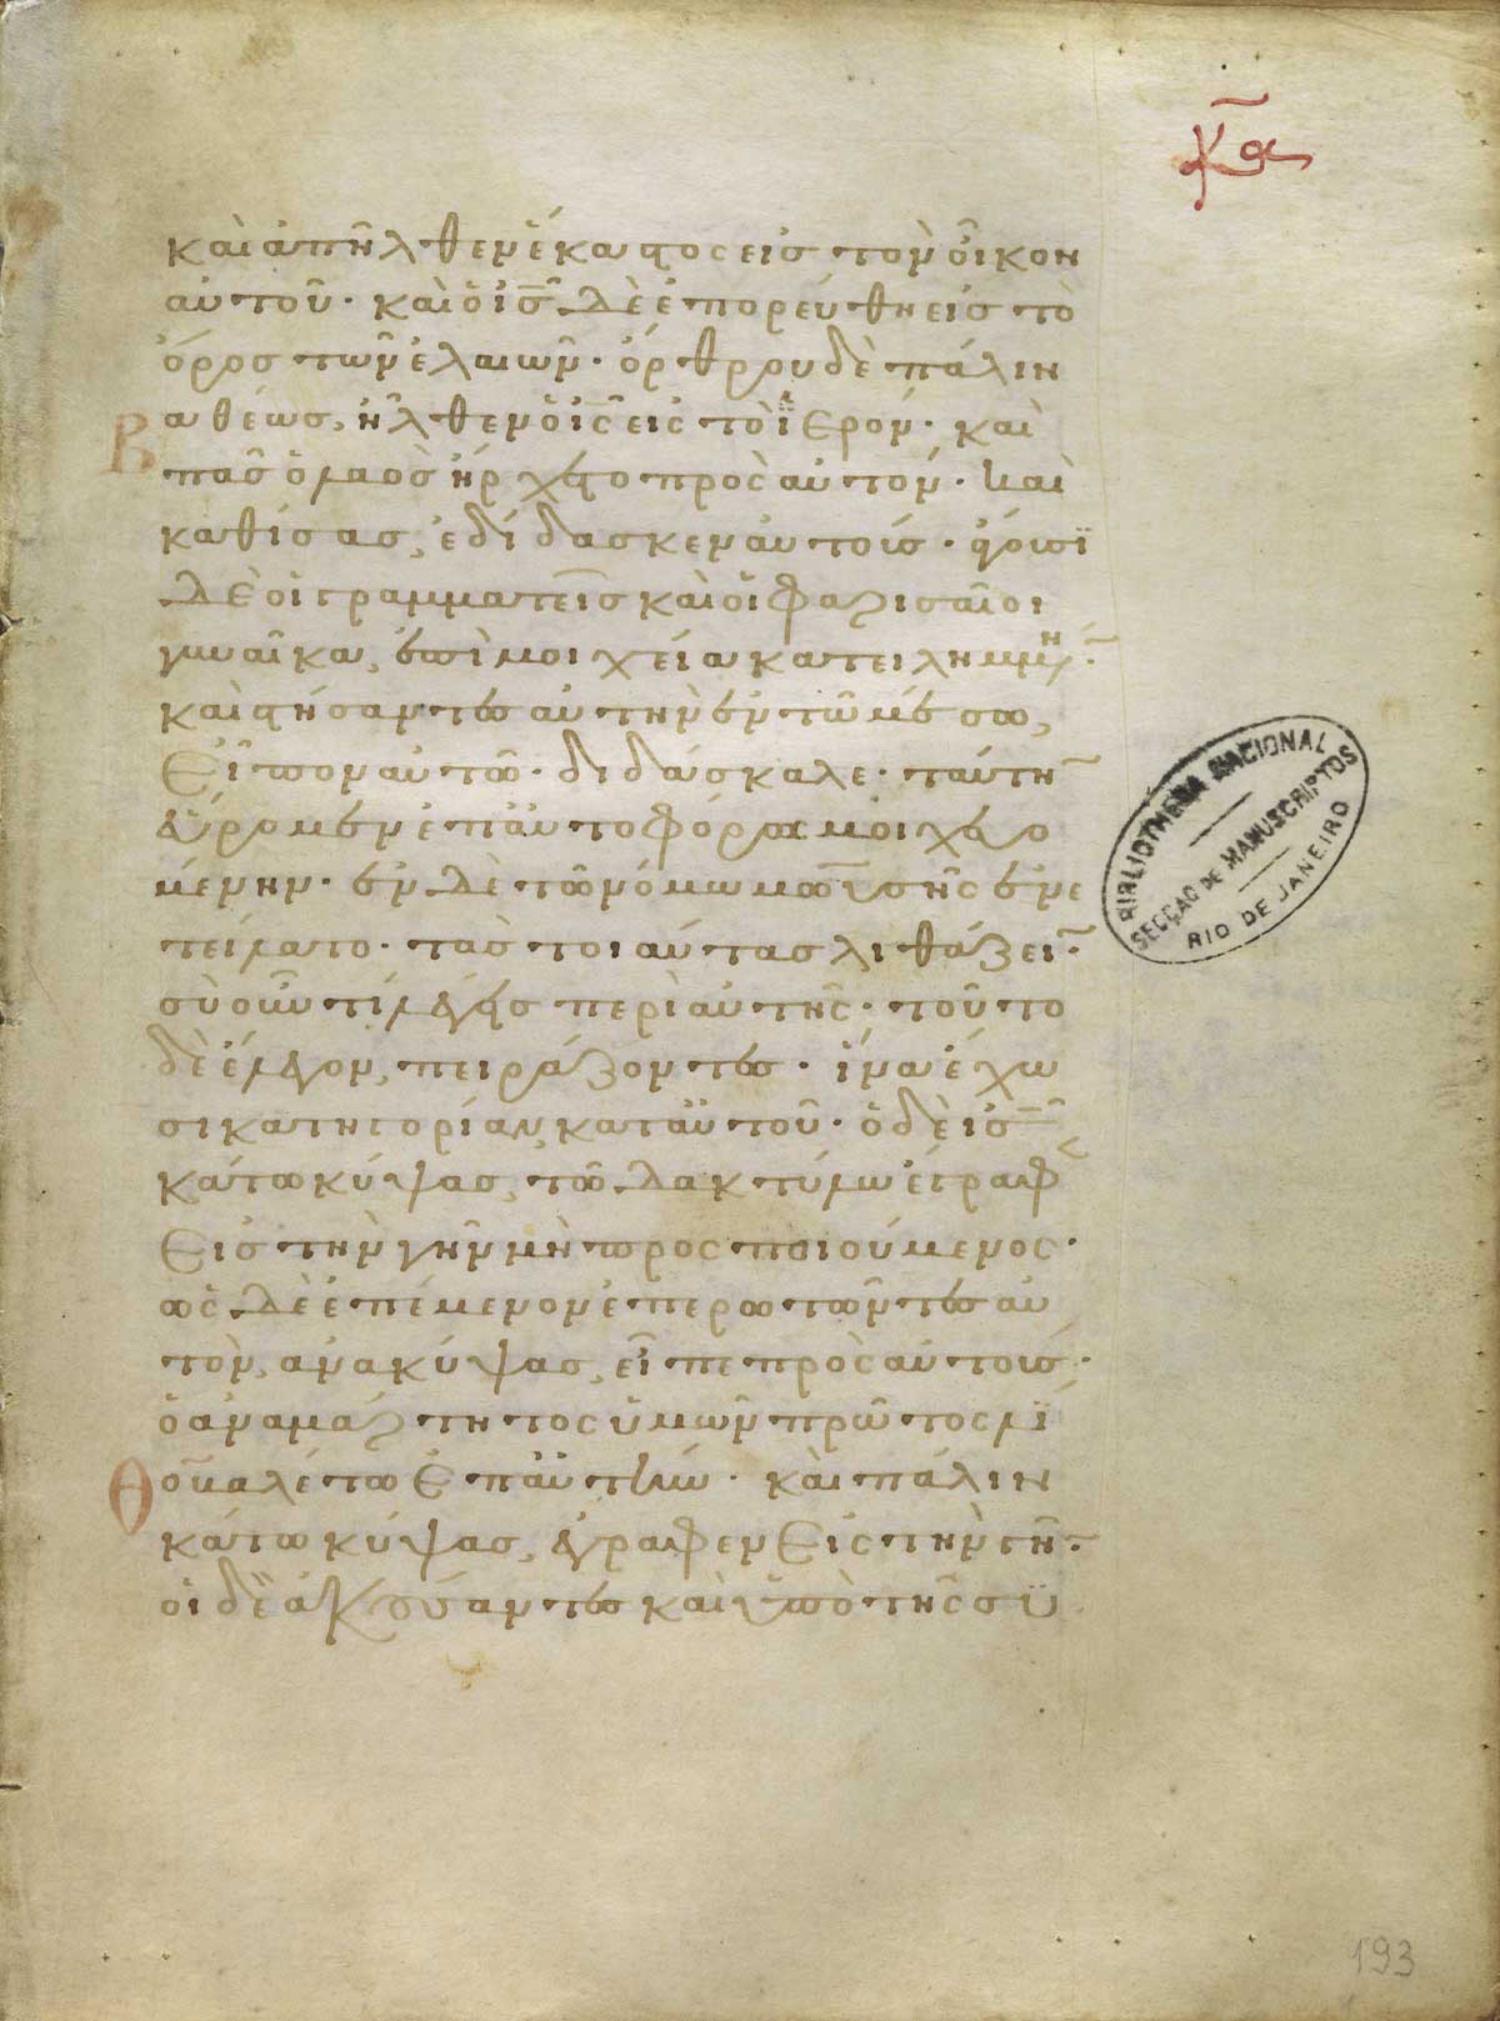 κα
καὶ ἀπῆλθεν ἕκαστος εἰς τὸν οἶκον
αὐτοῦ· καὶ ὁ ις δὲ ἐπορεύθη εἰς τὸ
ὄρος τῶν ἐλαιῶν· ὄρθρου δὲ πάλιν
Βαθέως, ἦλθεν ὁ ις εἰς τὸ ἱερόν· καὶ
πᾶς ὁ λαὸς ἤρχετο πρὸς αὐτόν· καὶ
καθίσας, ἐδίδασκεν αὐτούς·
δὲ οἱ γραμματεῖς καὶ οἱ φαρισαῖοι
γυναῖκα, ἐπὶ μοιχεία κατειλημμην·
καὶ στήσαντες αὐτὴν ἐν τῶ μέσω,
εἶπον αὐτῶ· διδάσκαλε· ταύτη
εὕρομεν ἐπαυτοφόρα μοιχευο
μένην· ἐν δὲ τῶ νόμω μωϋσῆς ἐνε
τείλατο· τὰς τοιαύτας λιθάζει·
σὺ οὖν τί λέγεις περὶ αὐτῆς· τοῦτο
δὲ ἔλεγον, πειράζοντες· ἵνα ἔχω
σι κατηγορίαν κατ αὐτοῦ· ὁ δὲ ις
κάτω κύψας, τῶ δακτύλω ἔγραφε
εἰς τὴν γῆν μὴ προσποιούμενος·
ὡς δὲ ἐπέμενον ἐπερωτῶντες αὐ
τόν, ἀνακύψας, εἶπε πρὸς αὐτούς·
ὁ ἀναμάρτητος ὑμῶν πρῶτος λί
θον βαλέτω ἐπ αὐτήν· καὶ πάλιν
κάτω κύψας, ἔγραφεν εἰς τὴν γῆ·
οἱ δὲ ἀκούσαντες καὶ ὑπὸ τῆς συ
BIBLIOTHECA NACIONAL
SECÇAO DE MANUSCRIPTOS
RIO DE JANEIRO
193